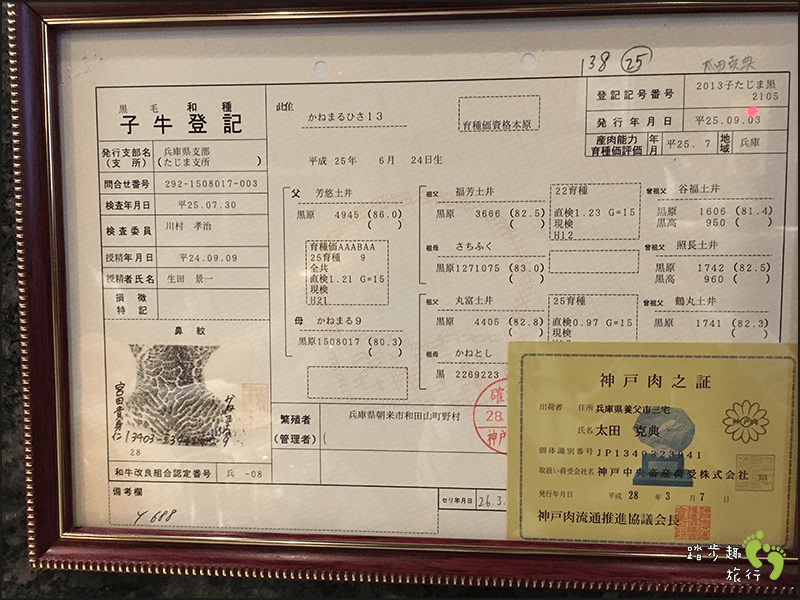 138 ㉕
太田克典
黒毛和種
子牛登記
発行支部名 兵庫県支部
(支所) (たじま支所 )
問合せ番号 292-1508017-003
検査年月日 平25.07.30
検査委員 川村 孝治
授精年月日 平24.09.09
授精者氏名 生田 景一
損徴
特記
鼻紋
28
和牛改良組合認定番号 兵 -08
備考欄
Y 688
かねまるひさ13
育種価資格本原
登記記号番号 2013子たじま黒
2105
発行年月日 平25.09.03
産肉能力 年 平25.7 地 兵庫
育種価評価 月 域
平成 25年 6月 24日生
父 芳悠土井
黒原 4945 (86.0)
( )
育種価AAABAA
25育種 9
全共
直検1.21 G=15
現検
H21
母 かねまる9
黒原1508017 (80.3)
( )
祖父 福芳土井
黒原 3666 (82.5)
( )
祖母 さちふく
黒原1271075 (83.0)
( )
祖父 丸富土井
黒原 4405 (82.8)
( )
祖母 かねとし
黒 2269223
22育種
直検1.23 G=15
現検
H12
25育種
直検0.97 G=15
現検
曾祖父 谷福土井
黒原 1606 (81.4)
黒高 950 ( )
曾祖父 照長土井
黒原 1742 (82.5)
黒高 960 ( )
曾祖父 鶴丸土井
黒原 1741 (82.3)
( )
繁殖者 兵庫県朝来市和田山町野村
(管理者) (
確
28.
神戸
セリ年月日 26.3.
神戸肉之証
出荷者 住所 兵庫県養父市三宅
氏名 太田 克典
個体識別番号 JP1349323941
取扱い荷受会社名 神戸中央畜産荷受株式会社
発行年月日 平成 28 年 3 月 7 日
神戸肉流通推進協議会長
神戸肉
印
踏步趣
旅行